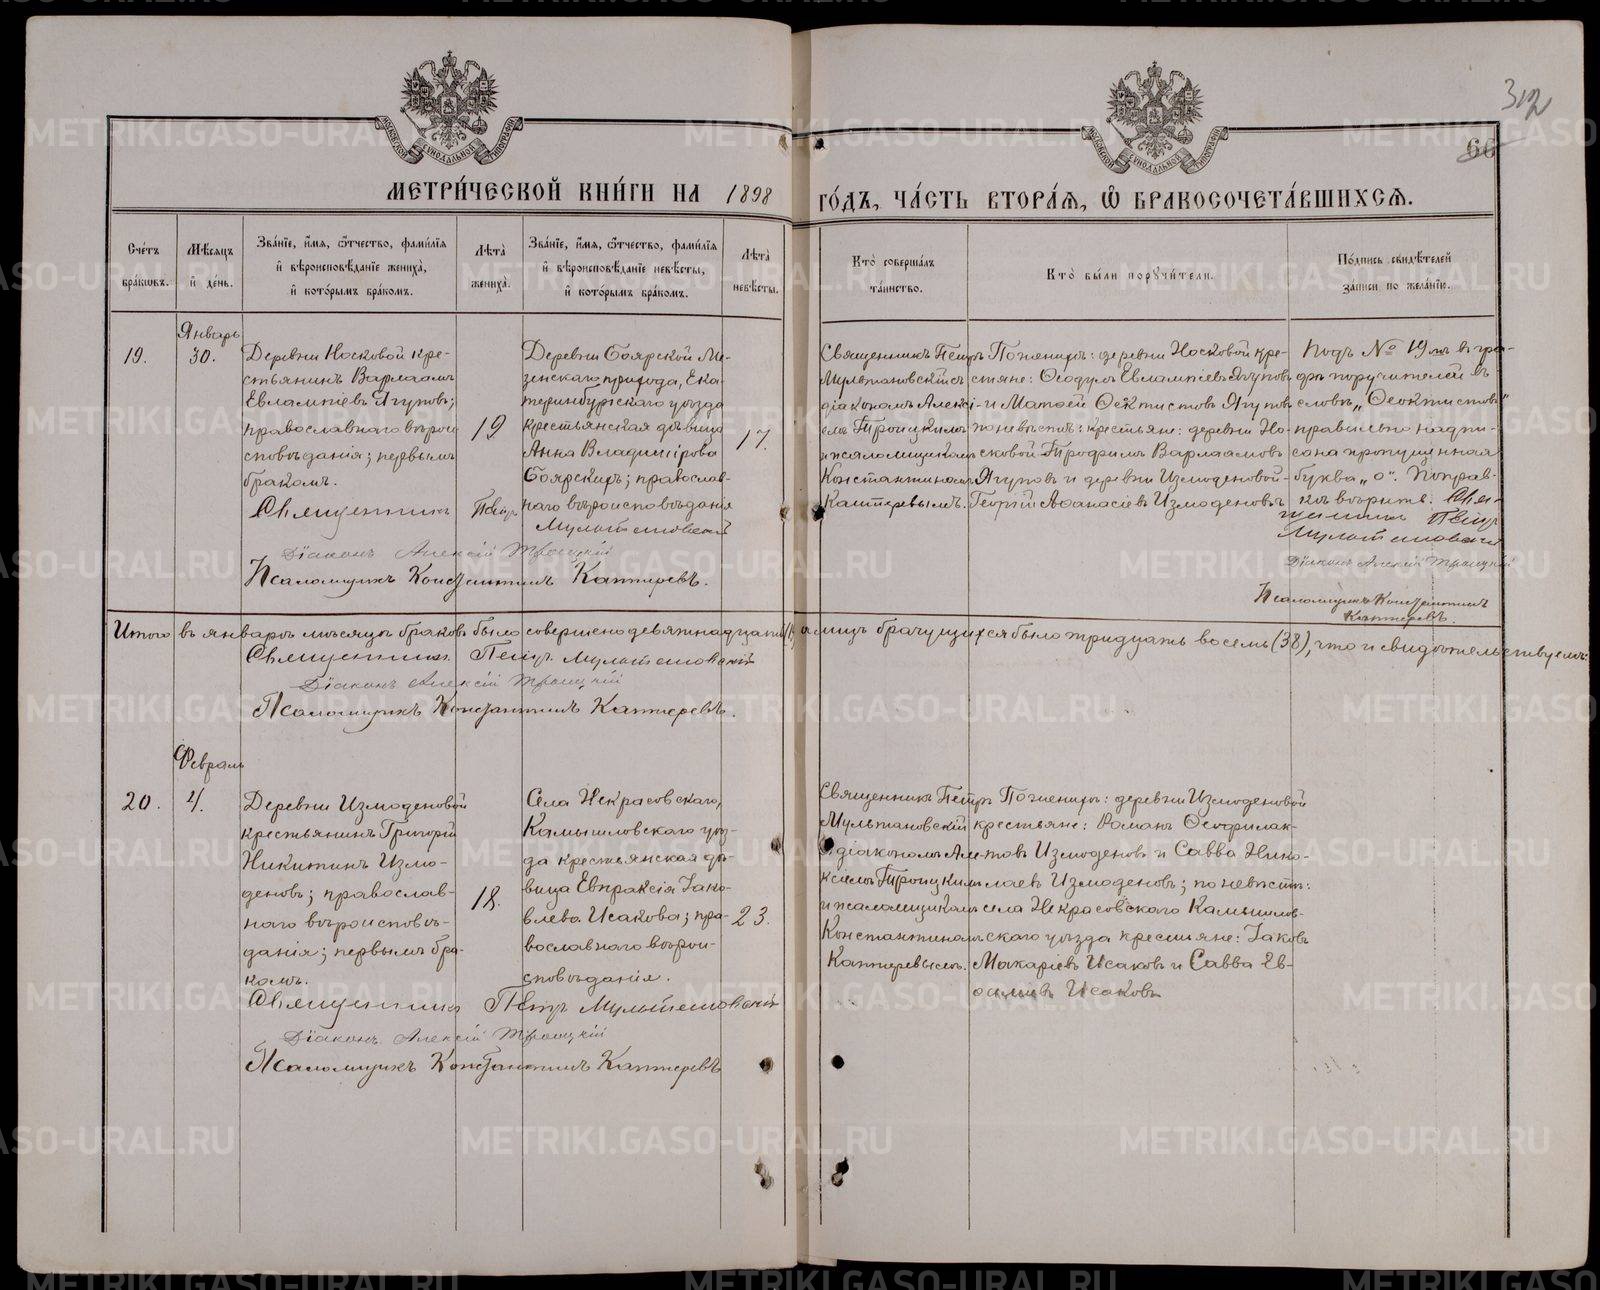 312
66
МЕТРИ́ЧЕСКОЙ КНИ́ГИ НА 1898 ГО́ДЪ, ЧА́СТЬ ВТОРА́Я, Ѿ БРАКОСОЧЕТА́ВШИХСЯ.
Сче́тъ бра́кѡвъ.
Мѣ́сяцъ и҆ де́нь.
Зва́нїе, и҆́мя, ѻ҆́тчество, фами́лїя и҆ вѣроисповѣ́данїе жениха̀, и҆ кото́рымъ бра́комъ.
Лѣ́та жениха̀.
Зва́нїе, и҆́мя, ѻ҆́тчество, фами́лїя и҆ вѣроисповѣ́данїе невѣ́сты, и҆ кото́рымъ бра́комъ.
Лѣ́та невѣ́сты.
Кто̀ соверша́лъ та́инство.
Кто̀ бы́ли поручи́тели.
По́дпись свидѣ́телей за́писи по жела́нїю.
Январь
19.
30.
Деревни Носковой кре-
стьянинъ Варлаамъ
Евлампіевъ Ягуповъ;
православнаго вѣрои
сповѣданія; первымъ
бракомъ.
19
Деревни Боярской Ме-
зенскаго прихода, Ека-
теринбургскаго уѣзда
крестьянская дѣвица
Анна Владимірова
Боярскихъ; православ-
наго вѣроисповѣданія
17.
Священникъ Петръ
Мультановскій съ
діакономъ Алексі-
емъ Троицкимъ
и псаломщикомъ
Константиномъ
Каптеревымъ.
По женихѣ: деревни Носковой кре-
стяне: Ѳеодулъ Евлампіевъ Ягуповъ
и Матѳей Ѳектистовъ Ягуповъ
по невѣстѣ: крестьяне: деревни Но-
сковой Трофимъ Варлаамовъ
Ягуповъ и деревни Измоденовой
Георгій Аѳанасіевъ Измоденовъ
Подъ № 19мъ въ гра-
фѣ поручителей въ
словѣ „Ѳеоктистовъ"
правильно надпи-
сана пропущенная
буква „о". Поправ-
кѣ вѣрить. Свя-
щенникъ Петръ
Мультановскій
Діаконъ Алексій Троицкій
Псаломщикъ Константинъ
Каптеревъ.
Священникъ Петръ
Мультановскій
Діаконъ Алексій Троицкій
Псаломщикъ Константинъ Каптеревъ.
Итого въ январѣ мѣсяцѣ браковъ было совершено девятнадцать (19, а лицъ брачущихся было тридцать восемь (38), что и свидѣтельствуемъ:
Священникъ Петръ Мультановскій
Діаконъ Алексій Троицкій
Псаломщикъ Константинъ Каптеревъ.
Февраль
20.
4.
Деревни Измоденовой
крестьянинъ Григорій
Никитинъ Измо-
деновъ; православ-
наго вѣроисповѣ-
данія; первымъ бра-
комъ.
18.
Села Некрасовскаго,
Камышловскаго уѣз-
да крестьянская дѣ-
вица Евпраксія Іако-
влева Исакова; пра-
вославнаго вѣрои-
сповѣданія.
23.
Священникъ Петръ
Мультановскій
съ діакономъ Але-
ксіемъ Троицкимъ
и псаломщикомъ
Константиномъ
Каптеревымъ.
По женихѣ: деревни Измоденовой
крестьяне: Романъ Ѳеофилак-
товъ Измоденовъ и Савва Нико-
лаевъ Измоденовъ; по невѣстѣ:
села Некрасовскаго Камышлов-
скаго уѣзда крестьяне: Іаковъ
Макаріевъ Исаковъ и Савва Ев-
Исаковъ
Священникъ Петръ Мультановскій
Діаконъ Алексій Троицкій
Псаломщикъ Константинъ Каптеревъ
METRIKI.GASO-URAL.RU